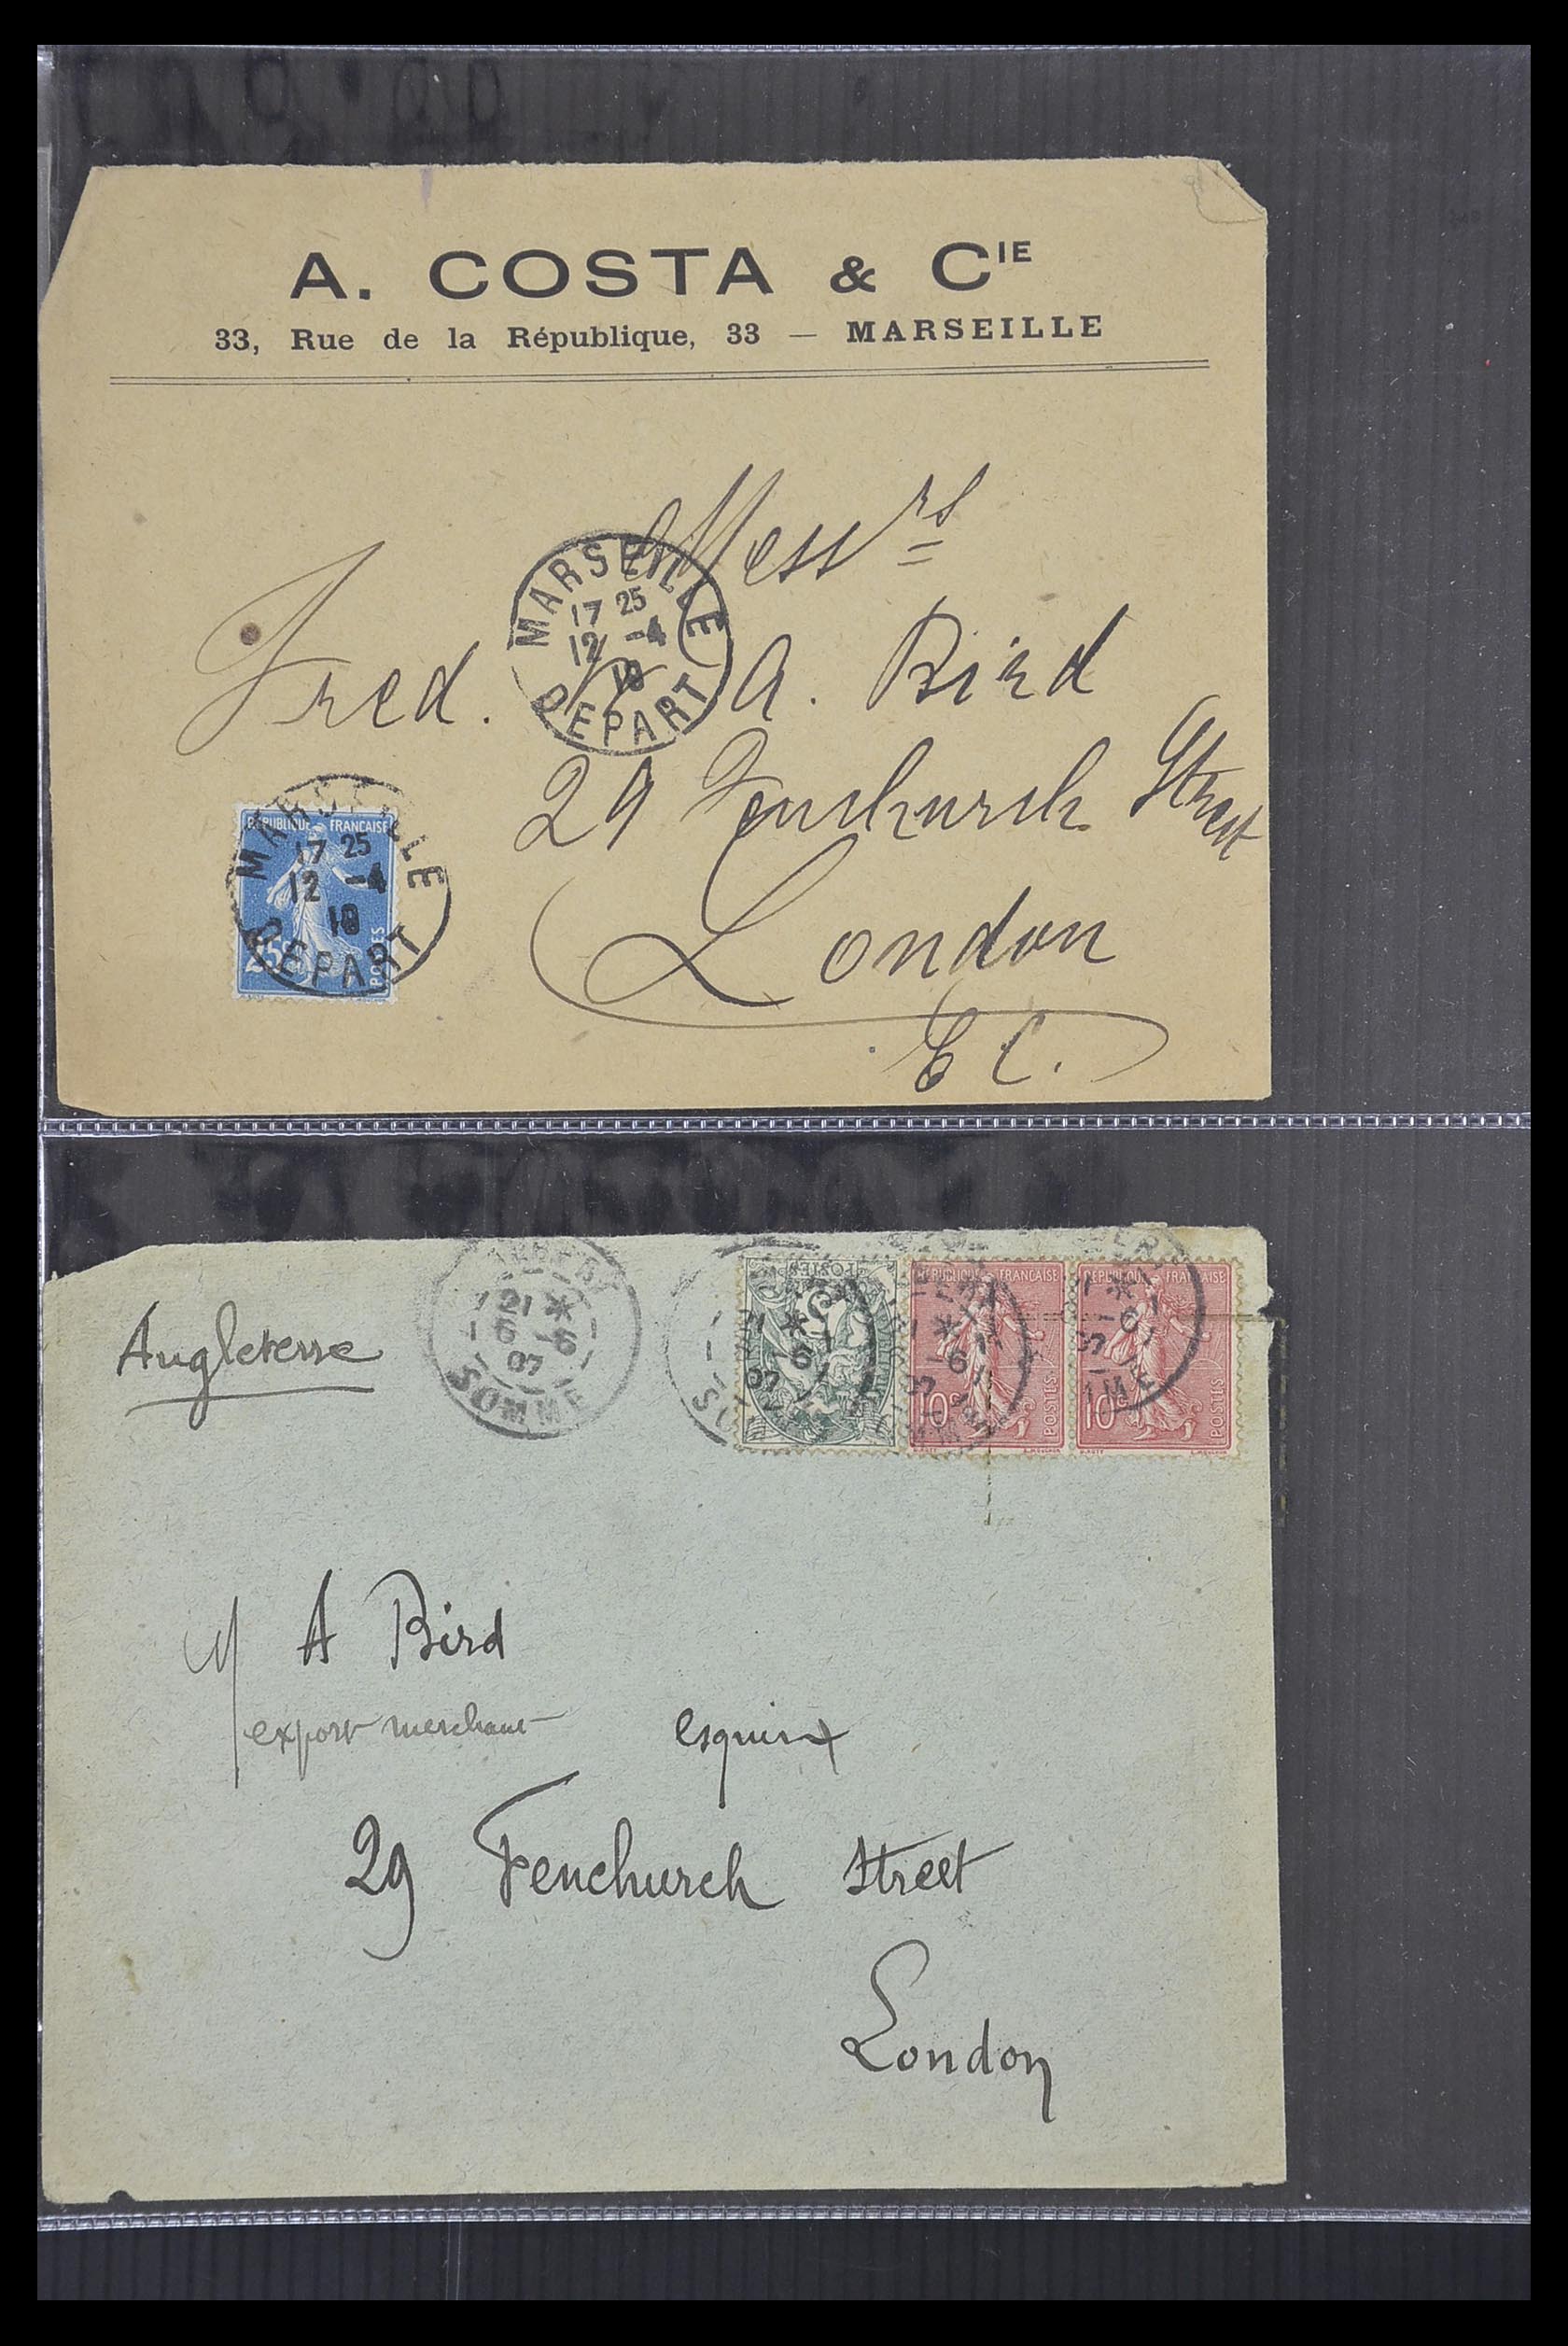 A. COSTA & CIE
33, Rue de la République, 33 — MARSEILLE
Messrs
Fred. A. Bird
29 Fenchurch Street
London
E C.
MARSEILLE
17 25
12 -4
10
DEPART
REPUBLIQUE FRANCAISE
25c
POSTES
MARSEILLE
17 25
12 -4
10
DEPART
Angleterre
21 *
6 -6
07
SOMME
POSTES
5
REPUBLIQUE FRANCAISE
10c
POSTES
REPUBLIQUE FRANCAISE
10c
POSTES
M A Bird
export merchant esquire
29 Fenchurch Street
London